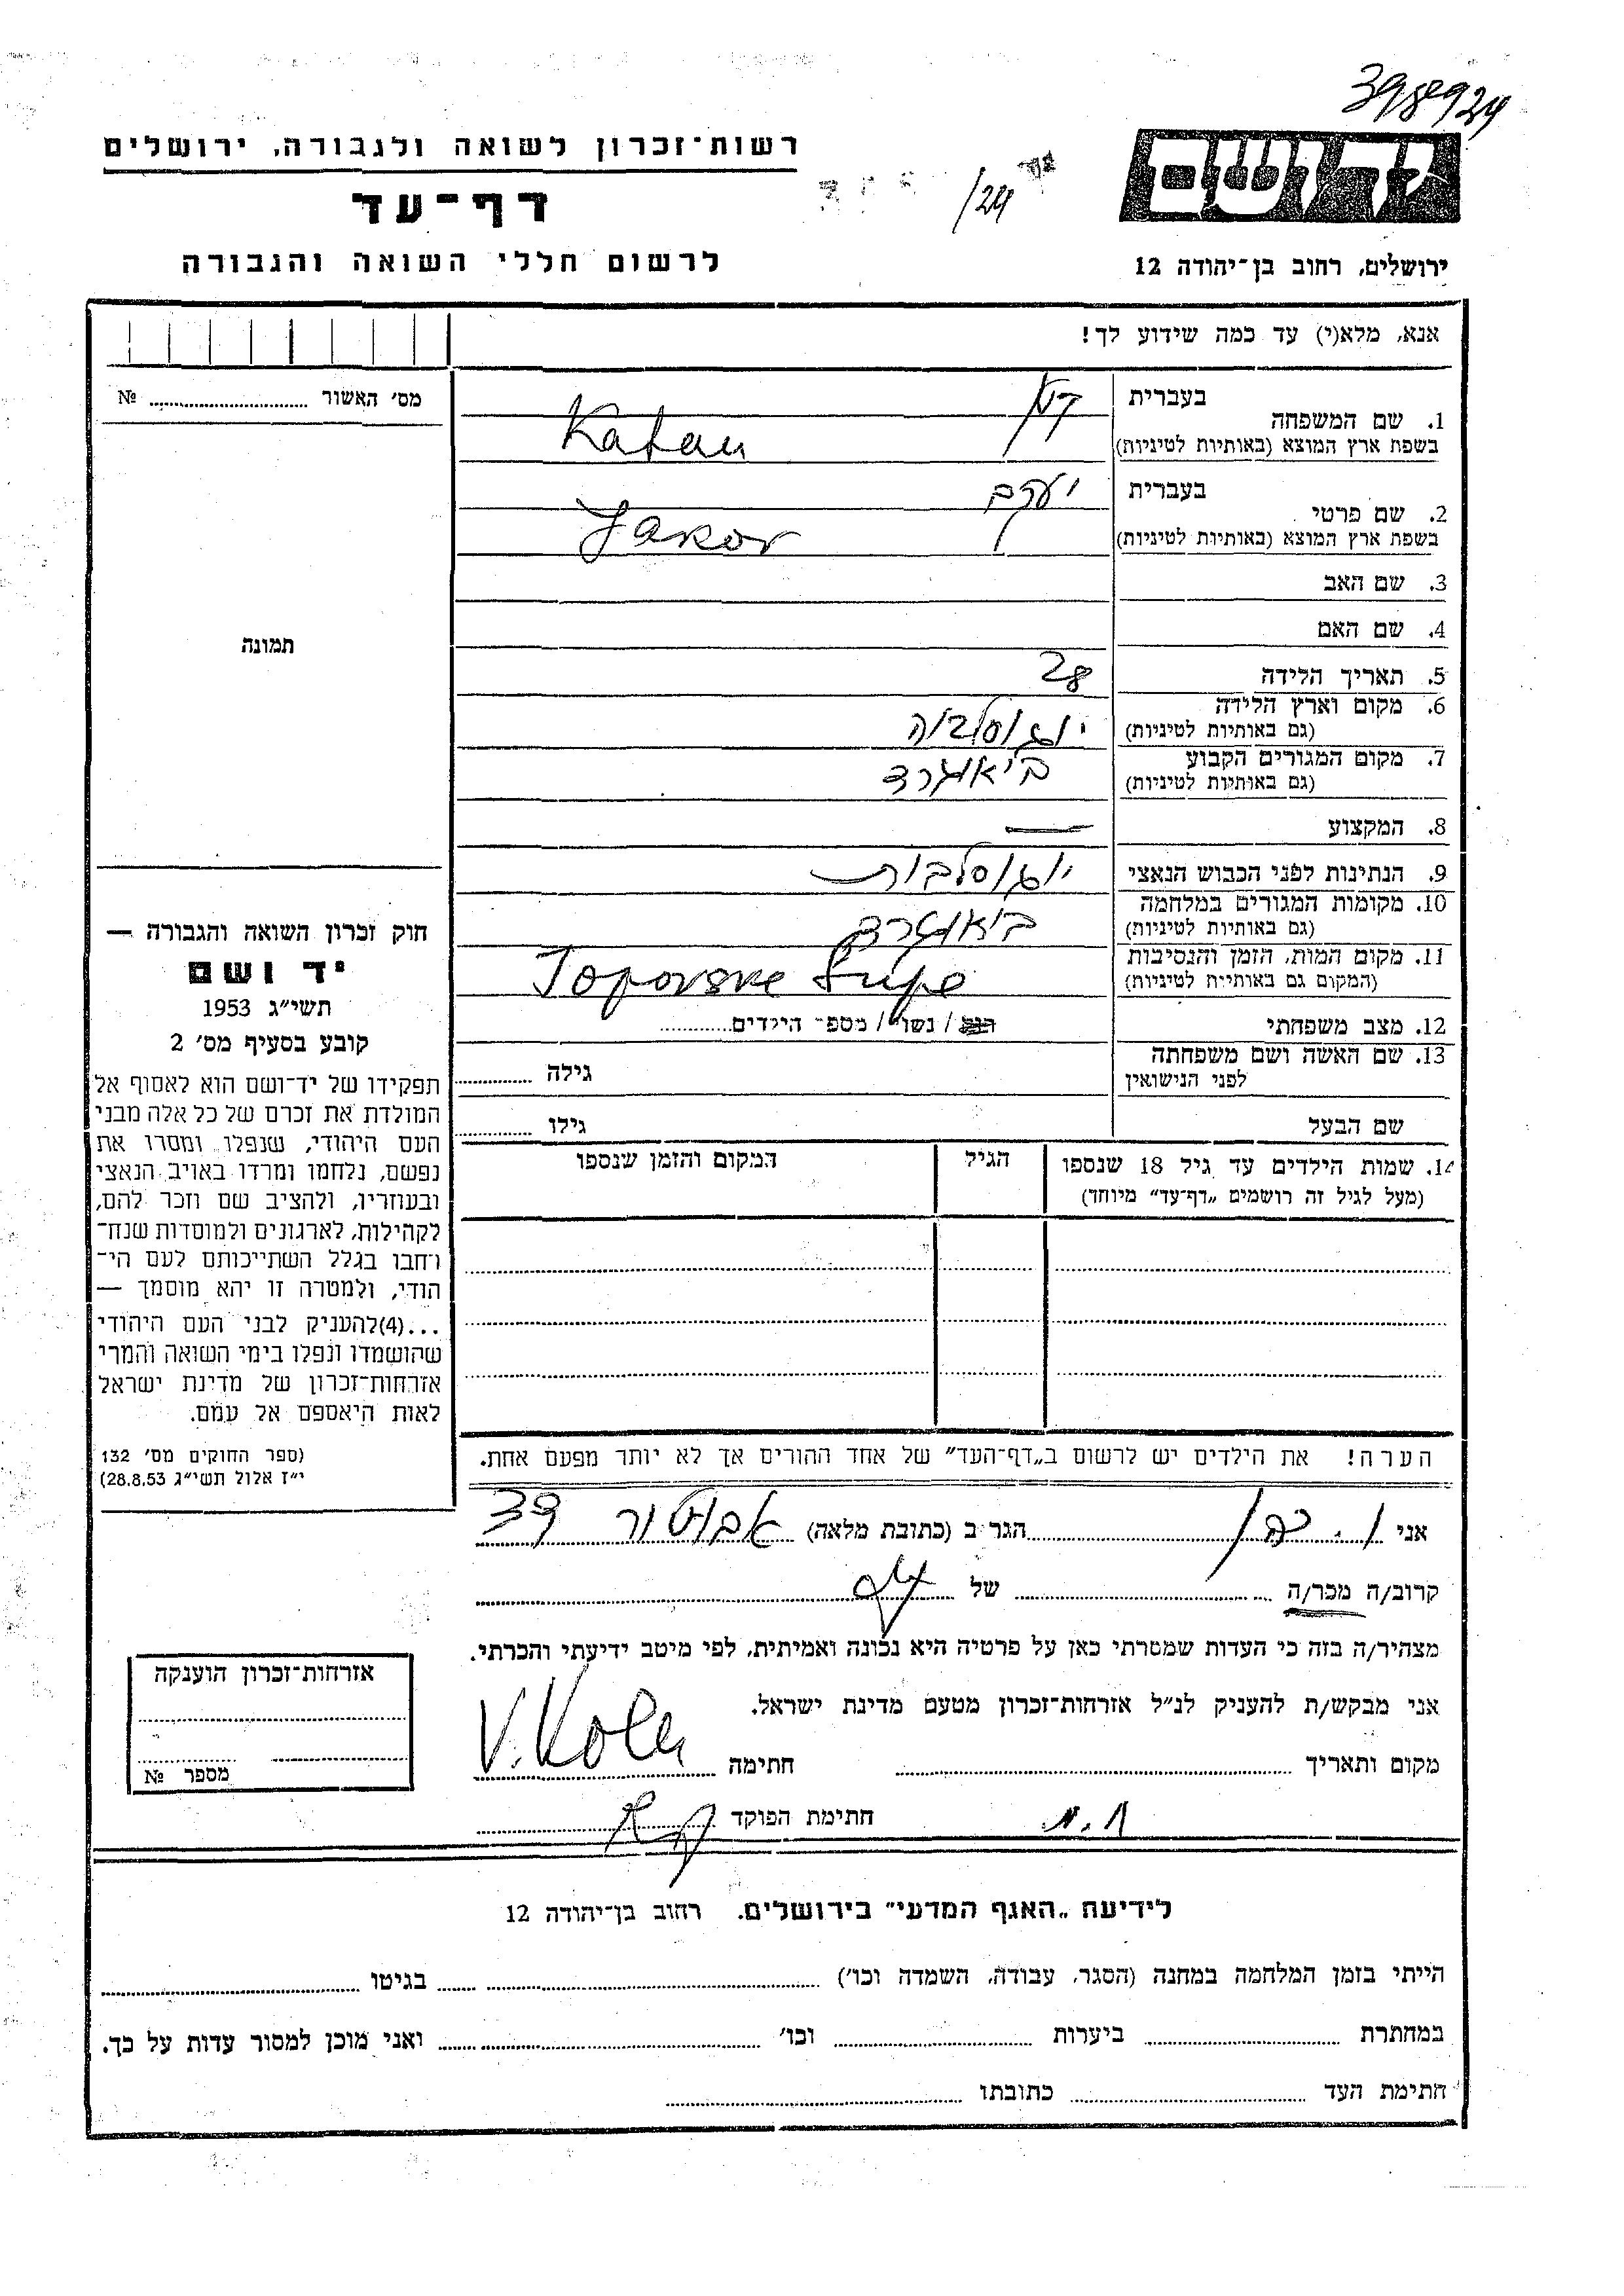 398924
רשות-זכרון לשואה ולגבורה, ירושלים
דף-עד
/24
לרשום חללי השואה והגבורה
ירושלים, רחוב בן-יהודה 12
אנא, מלא(י) עד כמה שידוע לך!
מס׳ האשור ............ №
תמונה
1. שם המשפחה
בעברית
קטן
בשפת ארץ המוצא (באותיות לטיניות)
Katan
2. שם פרטי
בעברית
יעקב
בשפת ארץ המוצא (באותיות לטיניות)
Jakov
3. שם האב
4. שם האם
5. תאריך הלידה
28
6. מקום וארץ הלידה
(גם באותיות לטיניות)
יוגוסלביה
7. מקום המגורים הקבוע
(גם באותיות לטיניות)
ביאוגרד
8. המקצוע
—
9. הנתינות לפני הכבוש הנאצי
יוגוסלבית
10. מקומות המגורים במלחמה
(גם באותיות לטיניות)
ביאוגרד
11. מקום המות, הזמן והנסיבות
(המקום גם באותיות לטיניות)
Topovske Šupe
12. מצב משפחתי
רווק / נשוי / מספ־ הילדים............
13. שם האשה ושם משפחתה
לפני הנישואין
גילה ............
שם הבעל
גילו ............
14. שמות הילדים עד גיל 18 שנספו
(מעל לגיל זה רושמים „דף-עד״ מיוחד)
הגיל
המקום והזמן שנספו
הערה! את הילדים יש לרשום ב„דף-העד״ של אחד ההורים אך לא יותר מפעם אחת.
חוק זכרון השואה והגבורה —
יד ושם
תשי״ג 1953
קובע בסעיף מס׳ 2
תפקידו של יד-ושם הוא לאסוף אל
המולדת את זכרם של כל אלה מבני
העם היהודי, שנפלו ומסרו את
נפשם, נלחמו ומרדו באויב הנאצי
ובעוזריו, ולהציב שם וזכר להם,
לקהילות, לארגונים ולמוסדות שנח־
רחבו בגלל השתייכותם לעם הי־
הודי, ולמטרה זו יהא מוסמך —
...(4)להעניק לבני העם היהודי
שהושמדו ונפלו בימי השואה והמרי
אזרחות-זכרון של מדינת ישראל
לאות היאספם אל עמם.
(ספר החוקים מס׳ 132
י״ז אלול תשי״ג 28.8.53)
אני ............ הגר ב (כתובת מלאה) ............ 39
קרוב/ה מכר/ה ............ של ............
מצהיר/ה בזה כי העדות שמסרתי כאן על פרטיה היא נכונה ואמיתית, לפי מיטב ידיעתי והכרתי.
אני מבקש/ת להעניק לנ״ל אזרחות-זכרון מטעם מדינת ישראל.
מקום ותאריך ............ חתימה V. Kolen
חתימת הפוקד ............
אזרחות-זכרון הוענקה
מספר №
לידיעת „האגף המדעי״ בירושלים. רחוב בן-יהודה 12
הייתי בזמן המלחמה במחנה (הסגר, עבודה, השמדה וכו׳) ............ בגיטו ............
במחתרת ............ ביערות ............ וכו׳ ............ ואני מוכן למסור עדות על כך.
חתימת העד ............ כתובתו ............